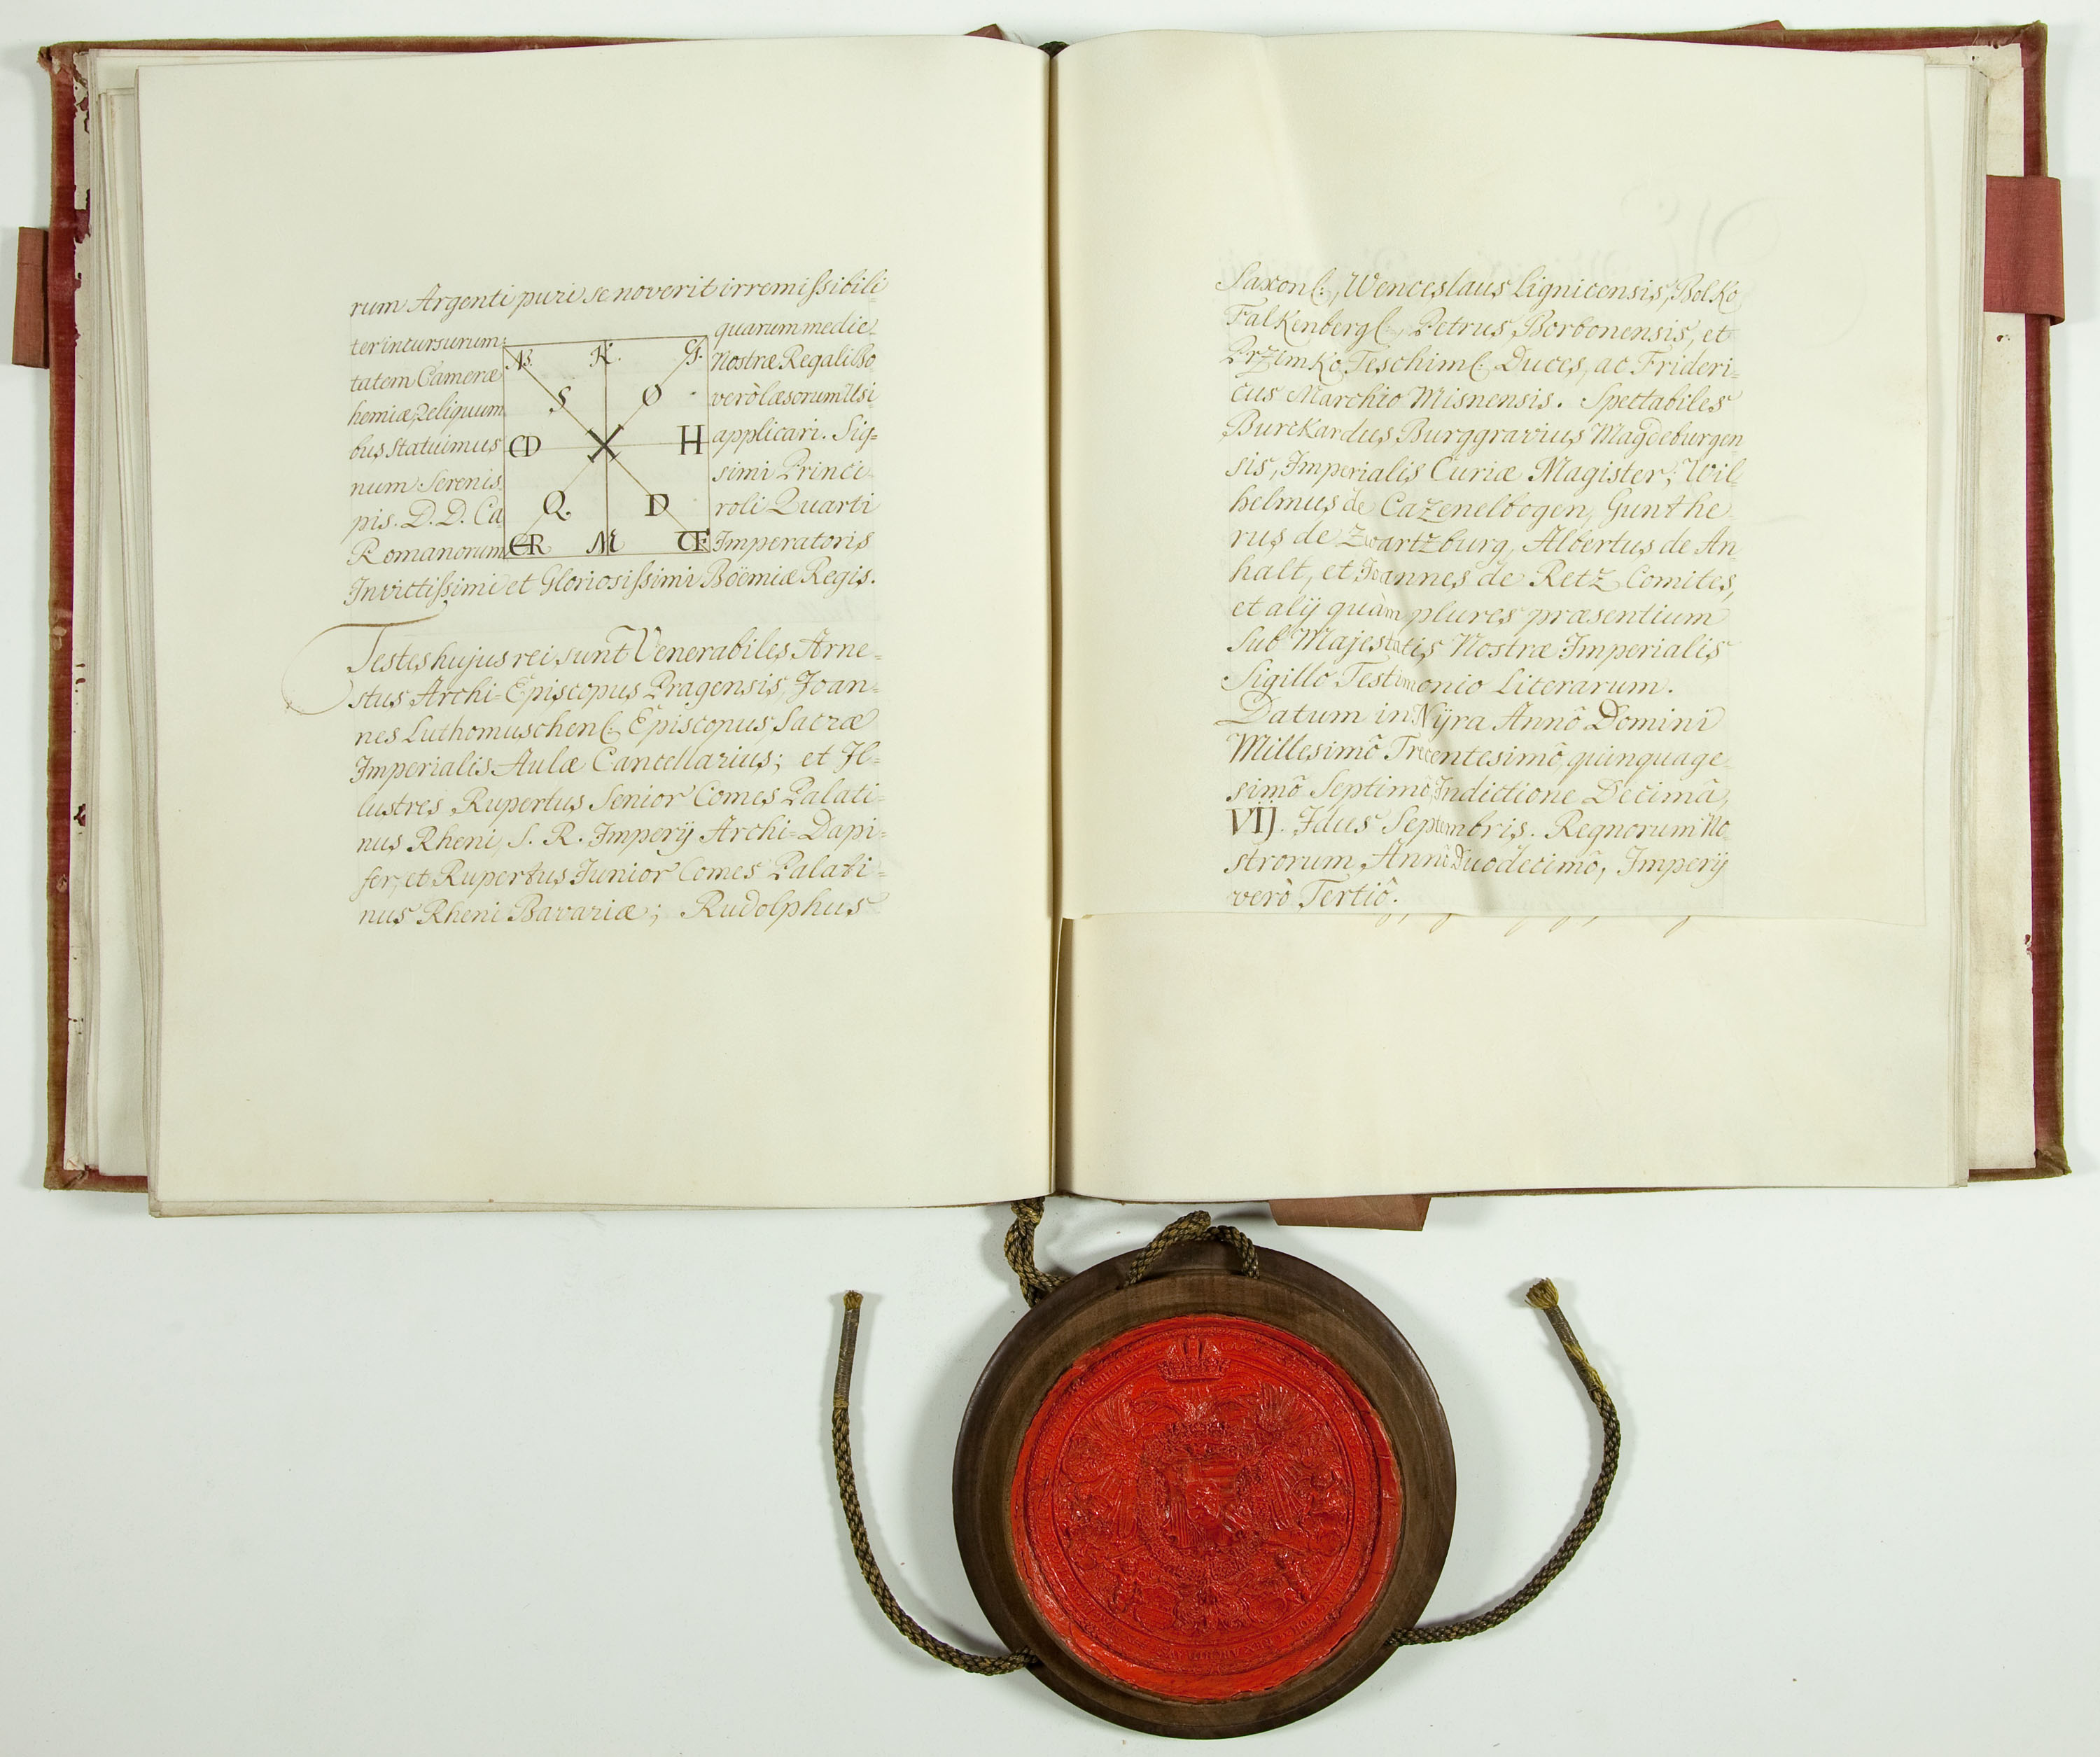 rum Argenti puri se noverit irremissibili
ter incursurum: quarum medie
tatem Cameræ Nostræ Regali Bo
hemiæ, Reliquum verò læsorum Usi
bus statuimus applicari. Sig=
num Serenis simi Princi
pis. D. D. Ca roli Quarti
Romanorum Imperatoris
N. K. G.
S O
CD X H
Q. D
ER M TF
Invictissimi et Gloriosissimi Boëmiæ Regis.
Testes hujus rei sunt Venerabiles Arne=
stus Archi=Episcopus Pragensis, Joan=
nes Luthomuschen: Episcopus, Sacræ
Imperialis Aulæ Cancellarius; et Il=
lustres Rupertus Senior Comes Palati=
nus Rheni, S. R. Imperÿ Archi=Dapi=
fer, et Rupertus Junior Comes Palati=
nus Rheni Bavariæ; Rudolphus
Saxon:, Wenceslaus Lignicensis, Bolko
Falkenberg:, Petrus Borbonensis, et
Przemko Teschim: Duces, ac Frideri=
cus Marchio Misnensis. Spectabiles
Burckardus Burggravius Magdeburgen
sis, Imperialis Curiæ Magister, Wil
helmus de Cazenelbogen, Gunthe
rus de Zwartzburg, Albertus de An
halt, et Joannes de Retz Comites,
et alÿ quàm plures præsentium
sub Majestatis Nostræ Imperialis
Sigillo Testimonio Literarum.
Datum in Nÿra Annô Domini
Millesimô Trecentesimô quinquage
simô Septimô, Indictione Decimâ,
VIJ. Idus Septembris. Regnorum No
strorum Annô Duodecimô, Imperÿ
verò Tertiô.